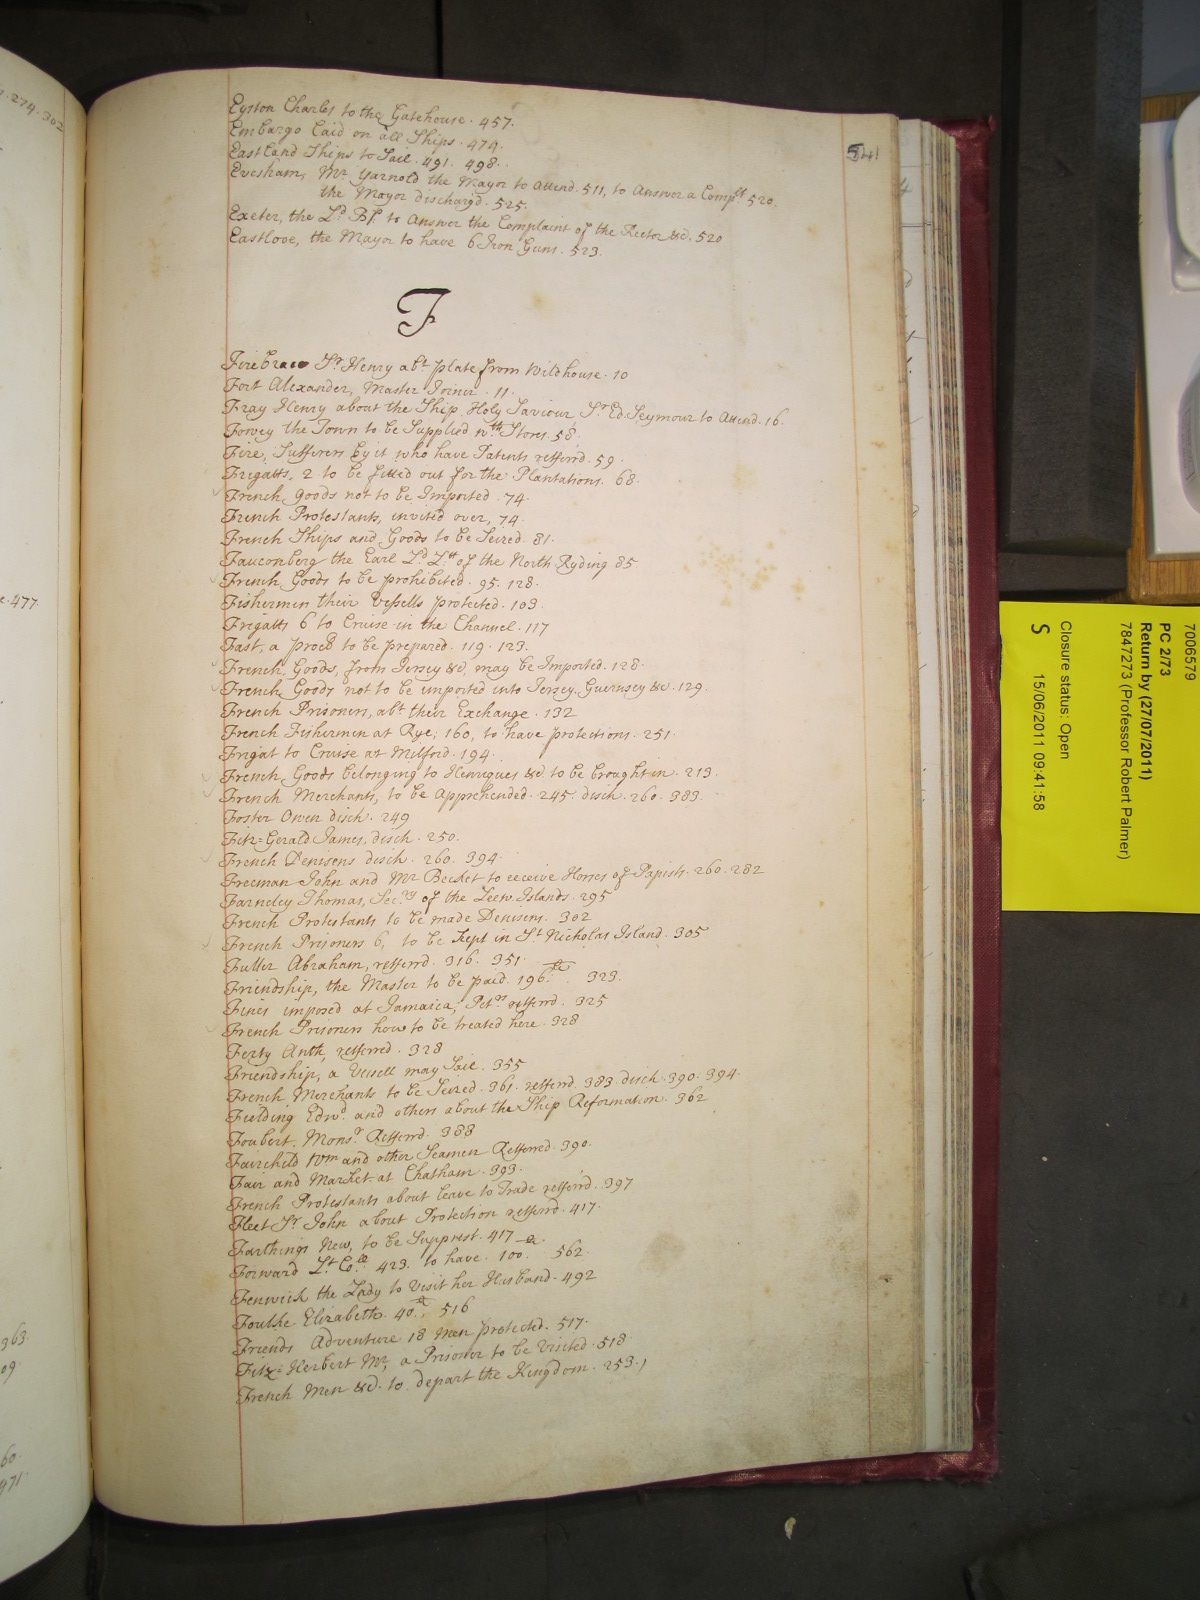 541
Eyston Charles to the Gatehouse. 457.
Embargo laid on all Ships. 474.
Eastland Ships to Sail. 491. 498.
Evesham, Mr. Yarnold the Mayor to Attend. 511, to Answer a Complt. 520.
the Mayor discharg'd. 525.
Exeter, the Ld. Bp. to Answer the Complaint of the Rector &c. 520
Eastlooe, the Mayor to have 6 Iron Guns. 523.
F
Firebrace Sr. Henry abt. plate from Wildhouse. 10
Fort Alexander, Master Joiner. 11.
Fray Henry about the Ship Holy Saviour Sr. Ed. Seymour to Attend. 16.
Fowey the Town to be Supplied wth. Stores. 58
Fire, Sufferers by it who have Patents refferrd. 59.
Frigatts, 2 to be fitted out for the Plantations. 68.
French, goods not to be Imported. 74.
French Protestants, invited over, 74.
French Ships and Goods to be Seized. 81.
Fauconberg the Earl Ld. Ltt. of the North Ryding 85
French Goods to be prohibited. 95. 128.
Fishermen their Vessells protected. 103.
Frigatts 6 to Cruise in the Channel. 117
Fast, a procl. to be prepared. 119. 123.
French, Goods, from Jersey &c. may be Imported. 128.
French Goods not to be imported into Jersey, Guernsey &c. 129.
French Prisoners, abt. their Exchange. 132
French Fishermen at Rye, 160, to have protections. 251.
Frigat to Cruise at Milford. 194.
French Goods belonging to Henriques &c. to be brought in. 213.
French Merchants, to be Apprehended. 245. disch. 260. 383.
Foster Owen disch. 249
Fitz=Gerald James, disch. 250.
French Denisens disch. 260. 394.
Freeman John and Mr. Becket to receive Horses of Papists. 260. 282
Farneley Thomas, Secry. of the Leew. Islands. 295
French Protestants to be made Denisens. 302
French Prisoners 6, to be Kept in St. Nicholas Island. 305
Fuller Abraham, refferrd. 316. 351.
Friendship, the Master to be paid 196 £. 323.
Fines imposed at Jamaica, Petrs. refferrd. 325
French Prisoners how to be treated here. 328
Ferty Anth, refferred. 328
Friendship, a Vessell may Sail. 355
French Merchants to be Seized. 361. refferrd. 383. disch. 390. 394.
Fielding Edwd. and others about the Ship Reformation. 362
Foubert. Monsr. Refferrd. 388
Fairchild Wm and other Seamen Refferred. 390.
Fair and Market at Chatham. 393.
French Protestants about leave to Trade refferrd. 397
Fleet Sr. John about Protection refferrd. 417.
Farthings New, to be Supprest. 417
Forward Lt. Coll. 423. to have 100 £. 562.
Fenwick the Lady to Visit her Husband. 492
Foulke Elizabeth. 40 £. 516
Friends Adventure 18 Men protected. 517.
Fitz=Herbert Mr, a Prisoner to be Visited. 518
French Men &c. to depart the Kingdom. 253.
.274.302
477
363.
09
60.
471.
7006579
PC 2/73
Return by (27/07/2011)
7847273 (Professor Robert Palmer)
Closure status: Open
S 15/06/2011 09:41:58